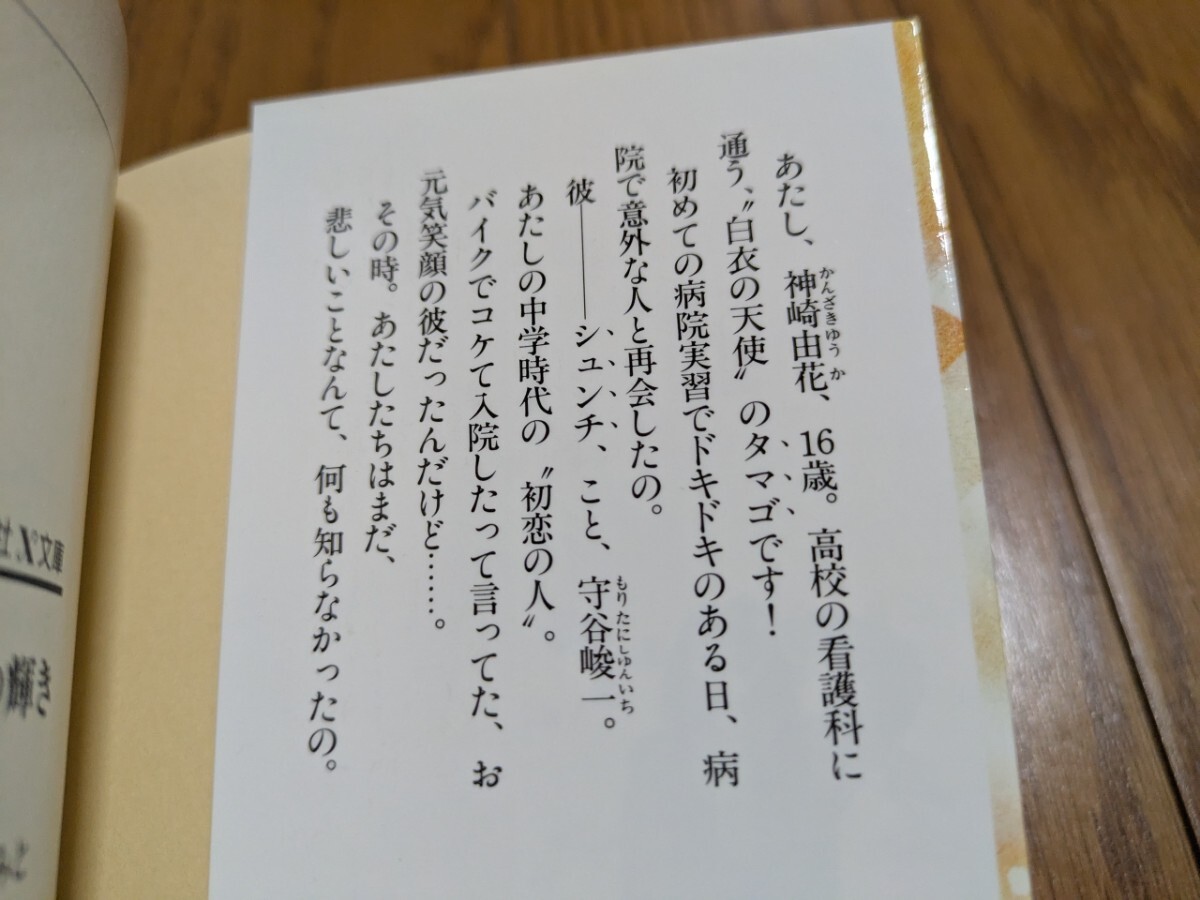 あたし、神崎由花、16歳。高校の看護科に
かんざきゆうか
通う、〝白衣の天使〟のタマゴです!
初めての病院実習でドキドキのある日、病
院で意外な人と再会したの。
彼――シュンチ、こと、守谷峻一。
もりたにしゅんいち
あたしの中学時代の〝初恋の人〟。
バイクでコケて入院したって言ってた、お
元気笑顔の彼だったんだけど……。
その時。あたしたちはまだ、
悲しいことなんて、何も知らなかったの。
X文庫
輝き